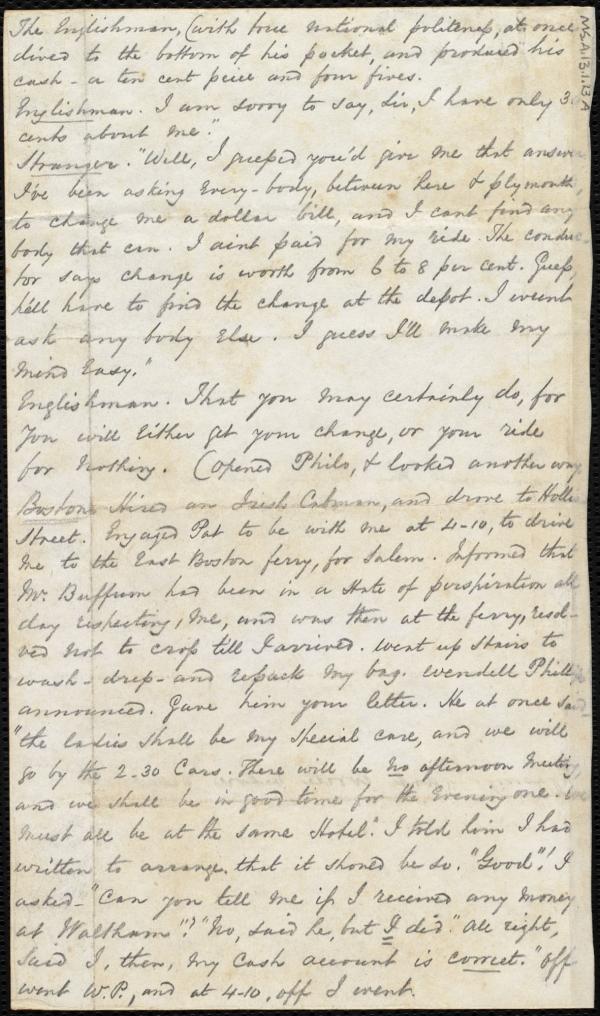 The Englishman, (with true national politeness, at once
dived to the bottom of his pocket, and produced his
cash - a ten cent piece and four fives.
Englishman. I am sorry to say, Sir, I have only 3
cents about me."
Stranger. "Well, I guessed you'd give me that answer
I've been asking Every-body, between here & plymouth,
to change me a dollar bill, and I cant find any
body that can. I aint paid for my ride. The conduc-
tor says change is worth from 6 to 8 per cent. Guess,
he'll have to find the change at the depot. I weunt
ask any body Else. I guess I'll make my
mind Easy."
Englishman. That you may certainly do, for
you will Either get your change, or your ride
for nothing. (opened Philo, & looked another way
Boston. Hired an Irish Cabman, and drove to Hollis
Street. Engaged Pat to be with me at 4-10, to drive
me to the East Boston ferry, for Salem. Informed that
Mr. Buffum had been in a state of perspiration all
day respecting, me, and was then at the ferry, resol-
ved not to cross till I arrived. went up stairs to
wash - dress - and repack my bag. Wendell Phillips
announced. Gave him your letter. He at once said
"the ladies shall be my special care, and we will
go by the 2-30 Cars. There will be no afternoon meeting,
and we shall be in good time for the Evening one. We
must all be at the same Hotel." I told him I had
written to arrange, that it should be so. "Good"! I
asked - "Can you tell me if I received any money
at Waltham"? "No, said he, but I did." All right,
said I, then, my cash account is correct." off
went W.P., and at 4-10, off I went.